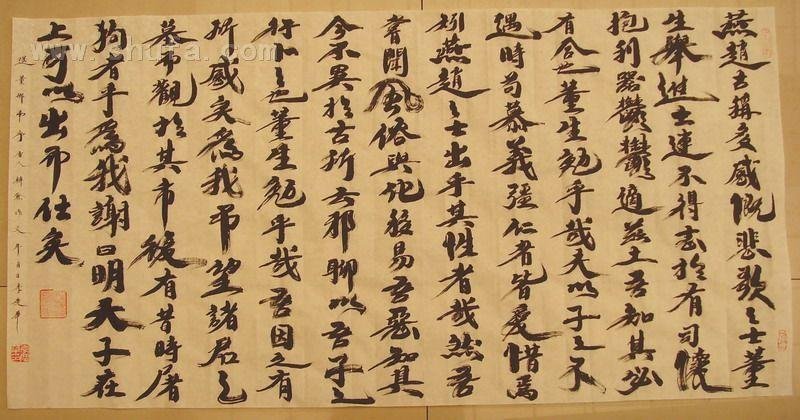 燕趙古稱多感慨悲歌之士董
生舉進士連不得志於有司懷
抱利器鬱鬱適茲土吾知其必
有合也董生勉乎哉夫以子之不
遇時苟慕義彊仁者皆愛惜焉
矧燕趙之士出乎其性者哉然吾
嘗聞風俗與化移易吾惡知其
今不異於古所云邪聊以吾子之
行卜之也董生勉乎哉吾因之有
所感矣為我弔望諸君之
墓而觀於其市復有昔時屠
狗者乎為我謝曰明天子在
上可以出而仕矣
送董邵南序